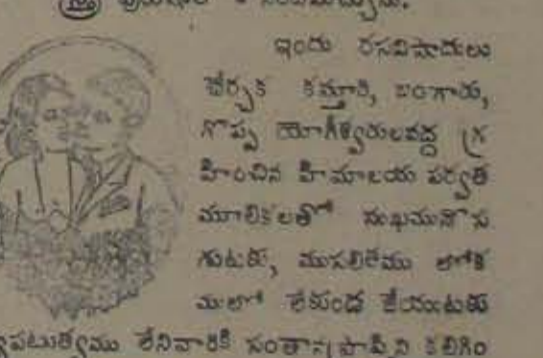 స్త్రీ పురుషుల
ఇందు రసపిషాదులు
చేర్చక కస్తూరి, బంగారు,
గొప్ప యోగీశ్వరులవద్ద గ్ర
హించిన హిమాలయ పర్వత
మూలికలతో సుఖమునొస
గుటకు, ముసలితేము లోక
ములో లేకుండ జేయుటకు
పటుత్వము లేనివారికి సంతానప్రాప్తిని కలిగిం